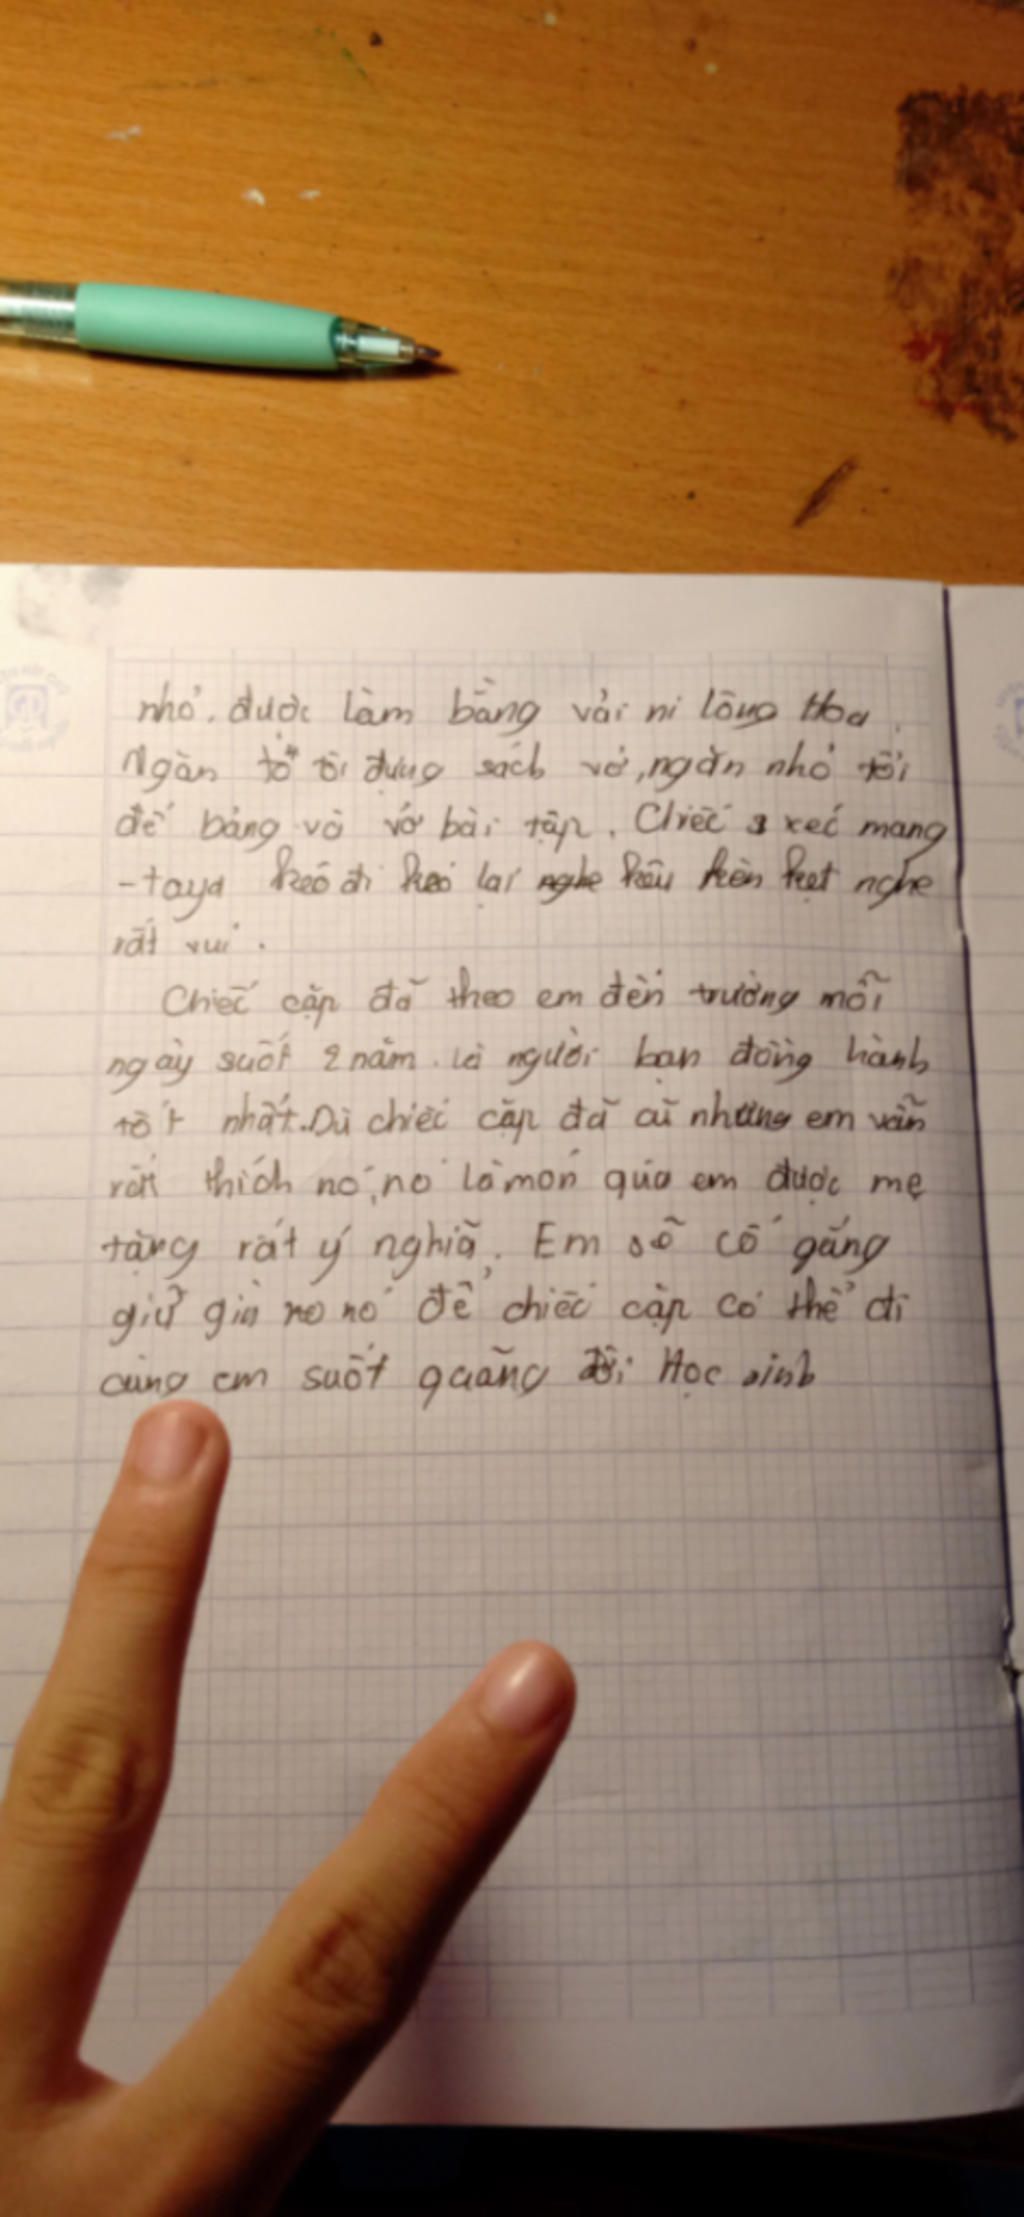 nhỏ. được làm bằng vải ni lông Hoa.
Ngăn to tôi đựng sách vở, ngăn nhỏ tôi
để bảng và vở bài tập. Chiếc xéc mang
-taya kéo đi kéo lại nghe kêu kèn kẹt nghe
rất vui.
Chiếc cặp đã theo em đến trường mỗi
ngày suốt 2 năm. là người bạn đồng hành
tốt nhất. Dù chiếc cặp đã cũ nhưng em vẫn
rất thích nó, nó là món qùa em được mẹ
tặng rất ý nghiã. Em sẽ cố gắng
giữ gìn no nó để chiếc cặp có thể đi
cùng em suốt quãng đời Học sinh